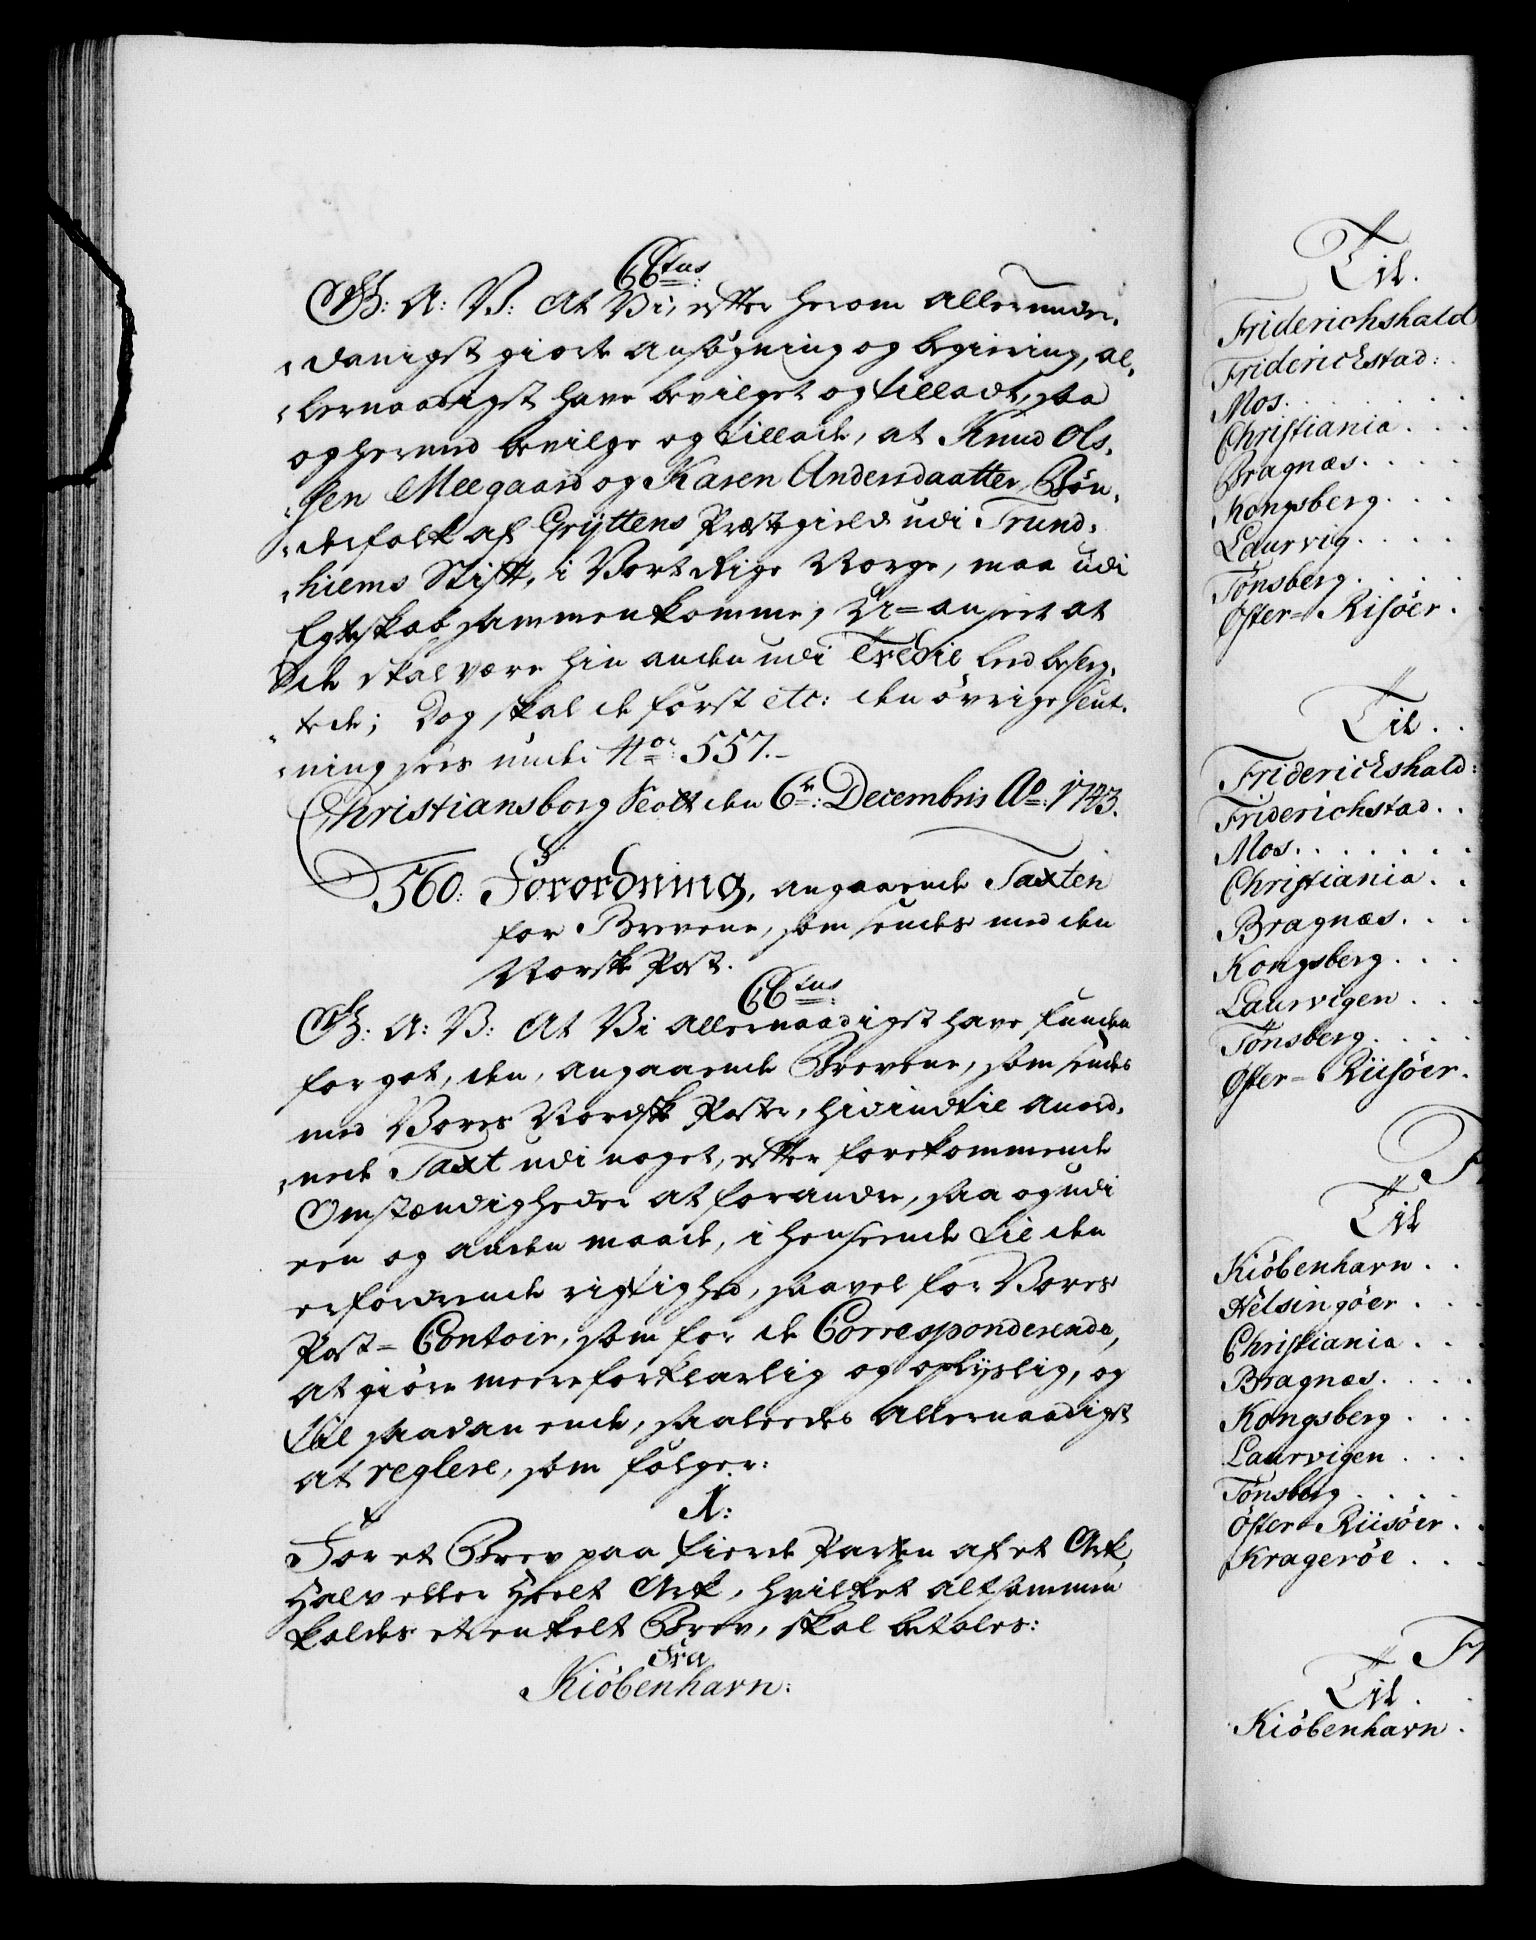 C6tus:
G: A: V: At Vi, efter herom allerunder-
danigst giorte ansøgning og begiering, al-
lernaadigst have bevilget og tilladt, saa
og hermed bevilge og tillade, at Knud Ols-
sen Meegaard og Karen Andersdaatter, Bøn-
derfolk af Gryttens Præstegield udi Trund-
hiems Stift, i Vort Rige Norge, maa udi
Egteskab sammenkomme, U-anseet at
de skal være hin anden udi Tredie Leed besleg-
tede; Dog skal de først etc: den øvrige slut-
ning sees under No: 557.
Christiansborg Slott den 6te: Decembris Ao: 1743.
560: Forordning, angaaende Taxten
for Brevene, som sendes med den
Norske Post.
C6tus:
G: A: V: At Vi allernaadigst have funden
for got, den, angaaende Brevene, som sendes
med Vores Nordske Poster, hidindtil anord-
nede Taxt udi noget, efter forekommende
Omstændigheder at forandre, saa og udi
een og anden maade, i henseende til den
erfordrende rigtighed, saavel for Vores
Post-Contoir, som for de Corresponderende,
at giøre meere forklarlig og oplyslig, og
til saadan ende, saaledes allernaadigst
at reglere, som følger:
1:
For et Brev paa fierde Parten af et Ark,
Halv eller Heelt Ark, hvilket altsammen
kaldes et enkelt Brev, skal betales:
Fra
Kiöbenhavn:
Til.
Friderichshald
Friderichstad:
Mos.
Christiania
Bragnæs
Kongsberg
Laurvig
Tönsberg
Öster-Risöer
Til
Friderichshald:
Friderichstad
Mos
Christiania
Bragnæs
Kongsberg
Laurvigen
Tönsberg
Öster-Riisöer
F
Til
Kiöbenhavn
Helsingöer
Christiania
Bragnæs
Kongsberg
Laurvigen
Tönsberg
Öster-Riisöer
Krageröe
Fr
Til
Kiöbenhavn